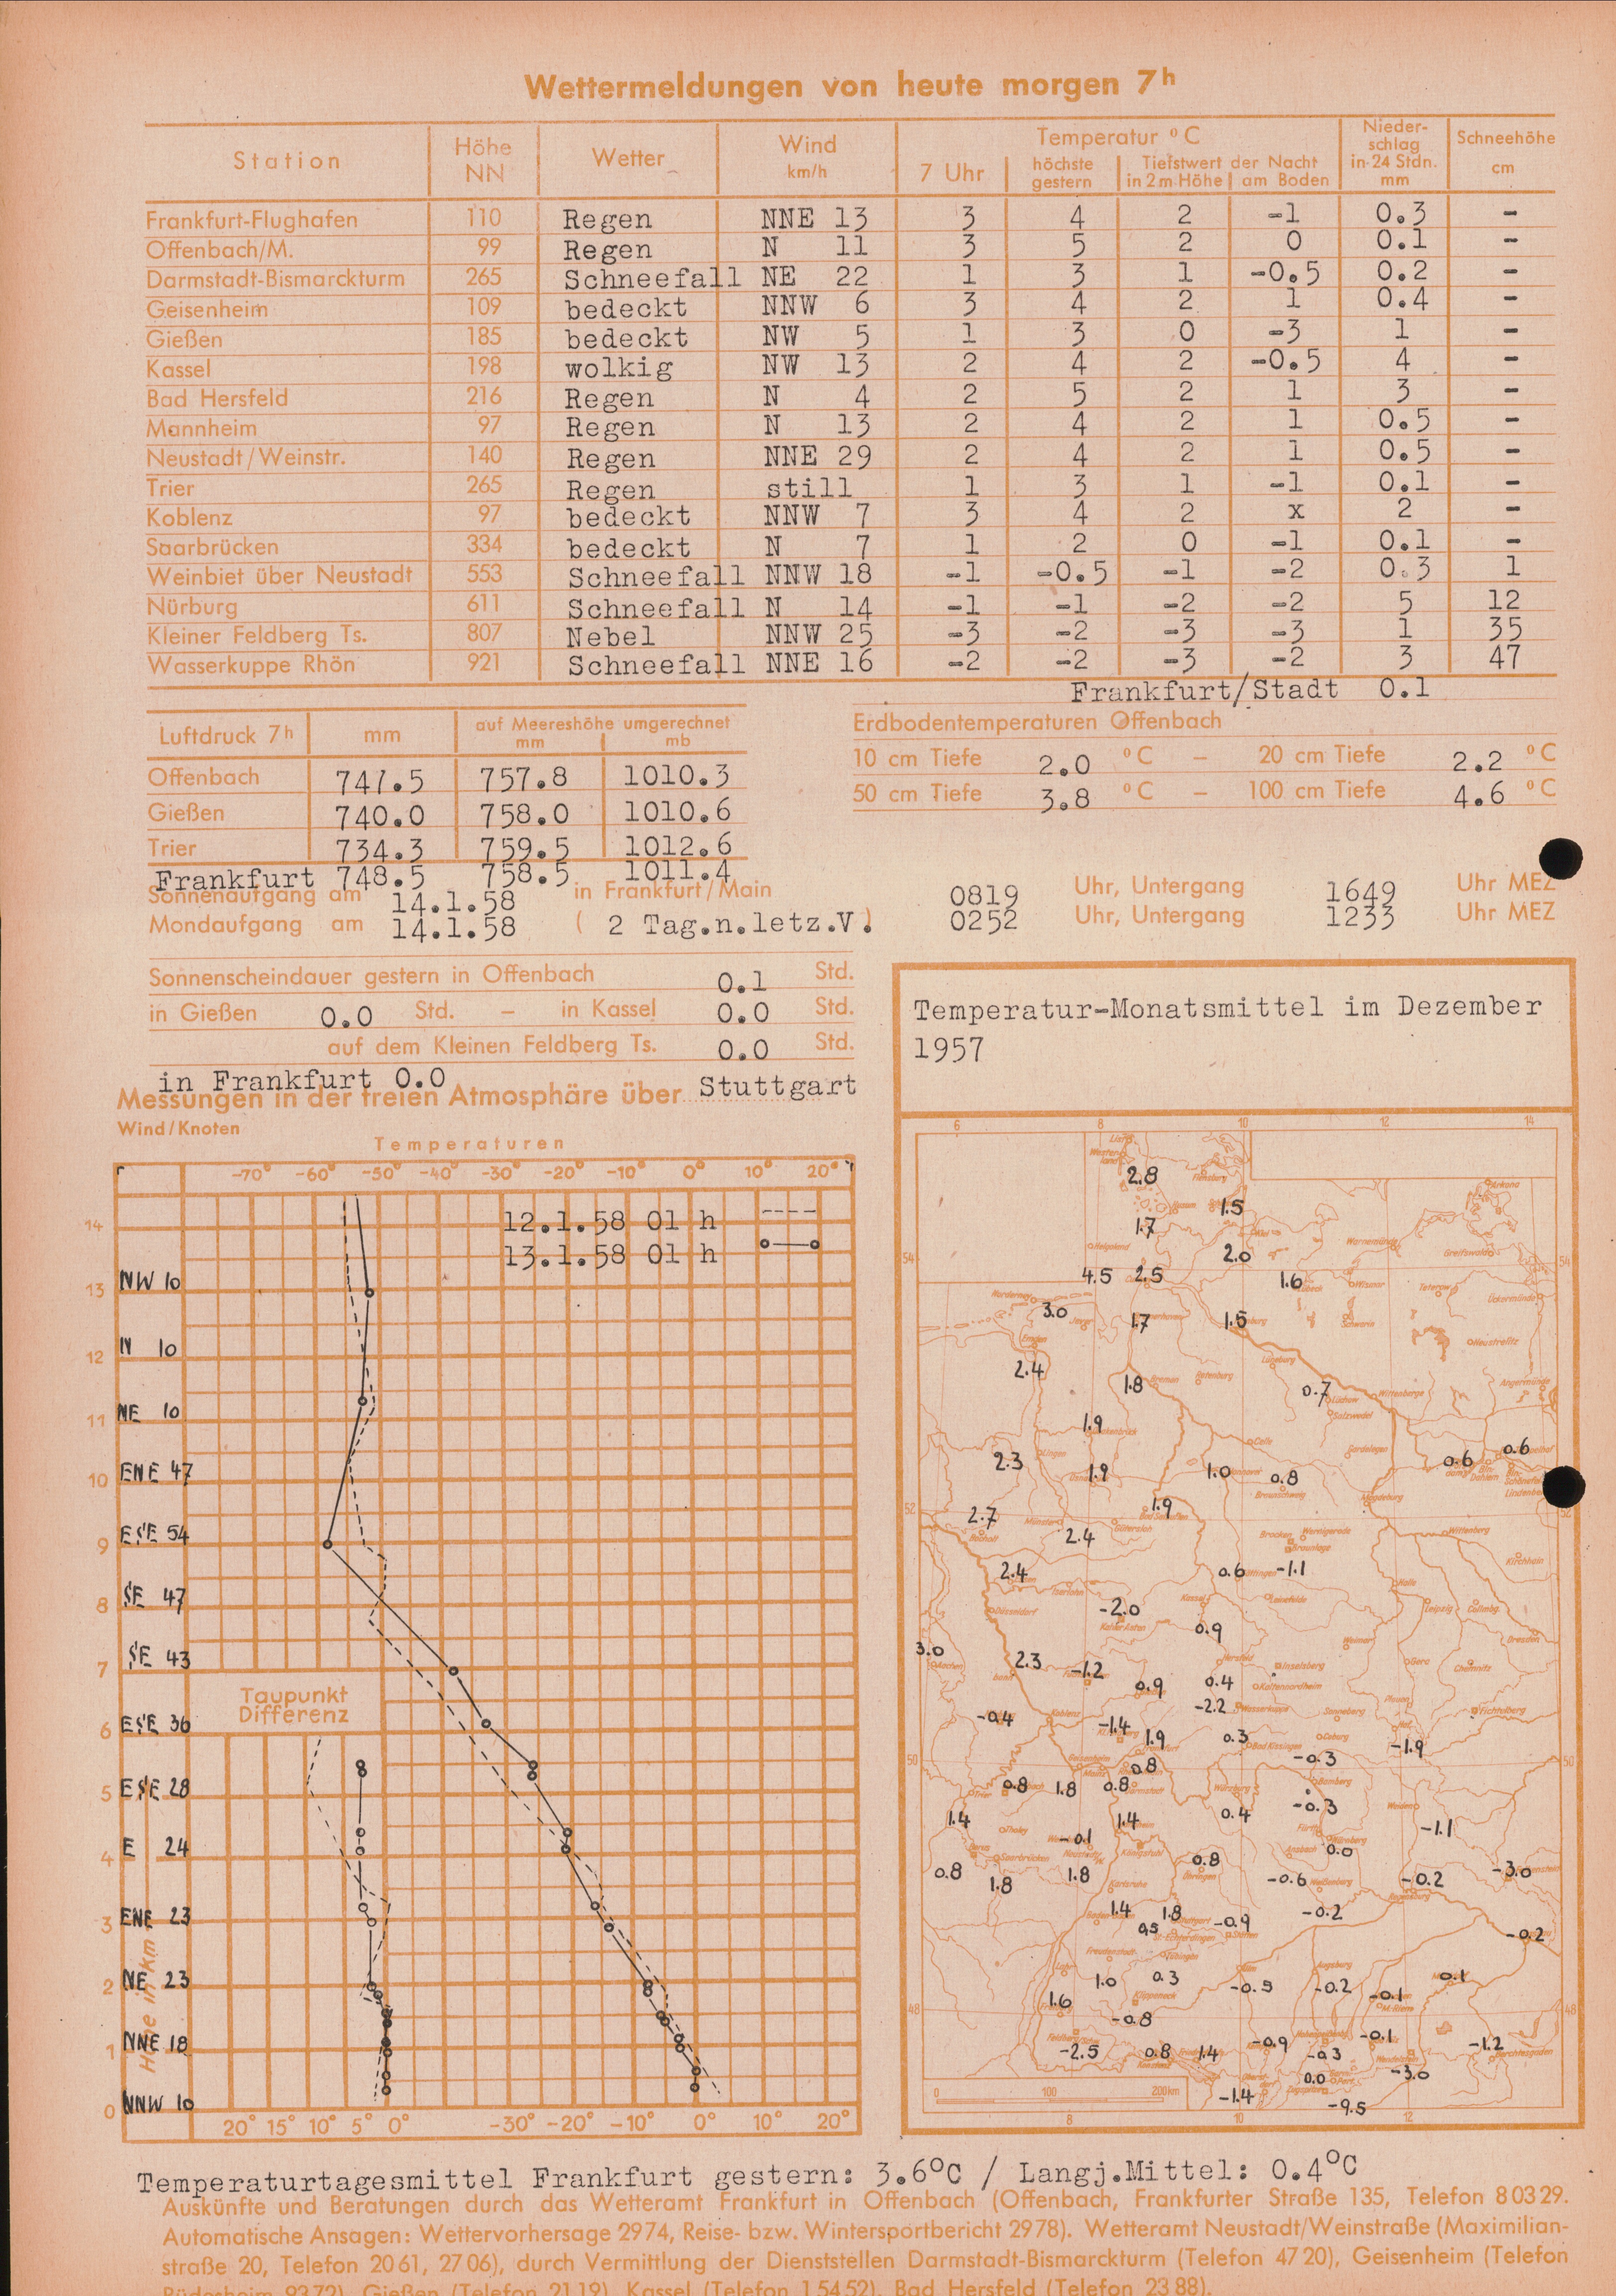 Wettermeldungen von heute morgen 7h
Station Höhe NN Wetter Wind km/h Temperatur °C 7 Uhr höchste gestern Tiefstwert der Nacht in 2m Höhe am Boden Nieder-schlag in 24 Stdn. mm Schneehöhe cm
Frankfurt-Flughafen 110 Regen NNE 13 3 4 2 -1 0.3 -
Offenbach/M. 99 Regen N 11 3 5 2 0 0.1 -
Darmstadt-Bismarckturm 265 Schneefall NE 22 1 3 1 -0.5 0.2 -
Geisenheim 109 bedeckt NNW 6 3 4 2 1 0.4 -
Gießen 185 bedeckt NW 5 1 3 0 -3 1 -
Kassel 198 wolkig NW 13 2 4 2 -0.5 4 -
Bad Hersfeld 216 Regen N 4 2 5 2 1 3 -
Mannheim 97 Regen N 13 2 4 2 1 0.5 -
Neustadt/Weinstr. 140 Regen NNE 29 2 4 2 1 0.5 -
Trier 265 Regen still 1 3 1 -1 0.1 -
Koblenz 97 bedeckt NNW 7 3 4 2 x 2 -
Saarbrücken 334 bedeckt N 7 1 2 0 -1 0.1 -
Weinbiet über Neustadt 553 Schneefall NNW 18 -1 -0.5 -1 -2 0.3 1
Nürburg 611 Schneefall N 14 -1 -1 -2 -2 5 12
Kleiner Feldberg Ts. 807 Nebel NNW 25 -3 -2 -3 -3 1 35
Wasserkuppe Rhön 921 Schneefall NNE 16 -2 -2 -3 -2 3 47
Frankfurt/Stadt 0.1
Luftdruck 7h mm auf Meereshöhe umgerechnet mm mb
Offenbach 747.5 757.8 1010.3
Gießen 740.0 758.0 1010.6
Trier 734.3 759.5 1012.6
Frankfurt 748.5 758.5 1011.4
Erdbodentemperaturen Offenbach
10 cm Tiefe 2.0 °C – 20 cm Tiefe 2.2 °C
50 cm Tiefe 3.8 °C – 100 cm Tiefe 4.6 °C
Sonnenaufgang am 14.1.58 in Frankfurt/Main 0819 Uhr, Untergang 1649 Uhr MEZ
Mondaufgang am 14.1.58 ( 2 Tag.n.letz.V.) 0252 Uhr, Untergang 1233 Uhr MEZ
Sonnenscheindauer gestern in Offenbach 0.1 Std.
in Gießen 0.0 Std. – in Kassel 0.0 Std.
auf dem Kleinen Feldberg Ts. 0.0 Std.
in Frankfurt 0.0
Messungen in der freien Atmosphäre über Stuttgart
Wind/Knoten
Temperaturen
-70° -60° -50° -40° -30° -20° -10° 0° 10° 20°
12.1.58 01 h
13.1.58 01 h
14
13 NW 10
12 N 10
11 NE 10
10 ENE 47
9 ESE 54
8 SE 47
7 SE 43
Taupunkt
Differenz
6 ESE 36
5 ESE 28
4 E 24
3 ENE 23
2 NE 23
1 NNE 18
0 NNW 10
Höhe in km
20° 15° 10° 5° 0° -30° -20° -10° 0° 10° 20°
Temperatur-Monatsmittel im Dezember
1957
6 8 10 12 14
2.8
1.5
1.7
2.0
54 54
4.5 2.5 1.6
3.0 1.7 1.5
2.4
1.8 0.7
1.9
2.3 1.9 1.0 0.8 0.6 0.6
52 2.7 1.9 52
2.4
2.4 0.6 -1.1
-2.0
0.9
3.0 2.3 -1.2
0.9 0.4
-2.2
-0.4 -1.4 1.9 0.3 -1.9
50 0.8 -0.3 50
0.8 1.8 0.8
1.4 1.4 0.4 -0.3 -1.1
-0.1 0.0
0.8 1.8 1.8 0.8 -0.6 -0.2 -3.0
1.4 1.8 0.5 -0.9 -0.2
-0.2
1.0 0.3 -0.5 -0.2 0.1
48 1.6 -0.1 48
-0.8
-2.5 0.8 1.4 -0.9 -0.3 -0.1 -1.2
0.0 -3.0
-1.4 -9.5
0 100 200km
8 10 12
Temperaturtagesmittel Frankfurt gestern: 3.6°C / Langj.Mittel: 0.4°C
Auskünfte und Beratungen durch das Wetteramt Frankfurt in Offenbach (Offenbach, Frankfurter Straße 135, Telefon 80329.
Automatische Ansagen: Wettervorhersage 2974, Reise- bzw. Wintersportbericht 2978). Wetteramt Neustadt/Weinstraße (Maximilian-
straße 20, Telefon 2061, 2706), durch Vermittlung der Dienststellen Darmstadt-Bismarckturm (Telefon 4720), Geisenheim (Telefon
Rüdesheim 9372), Gießen (Telefon 2119), Kassel (Telefon 15452), Bad Hersfeld (Telefon 2388).